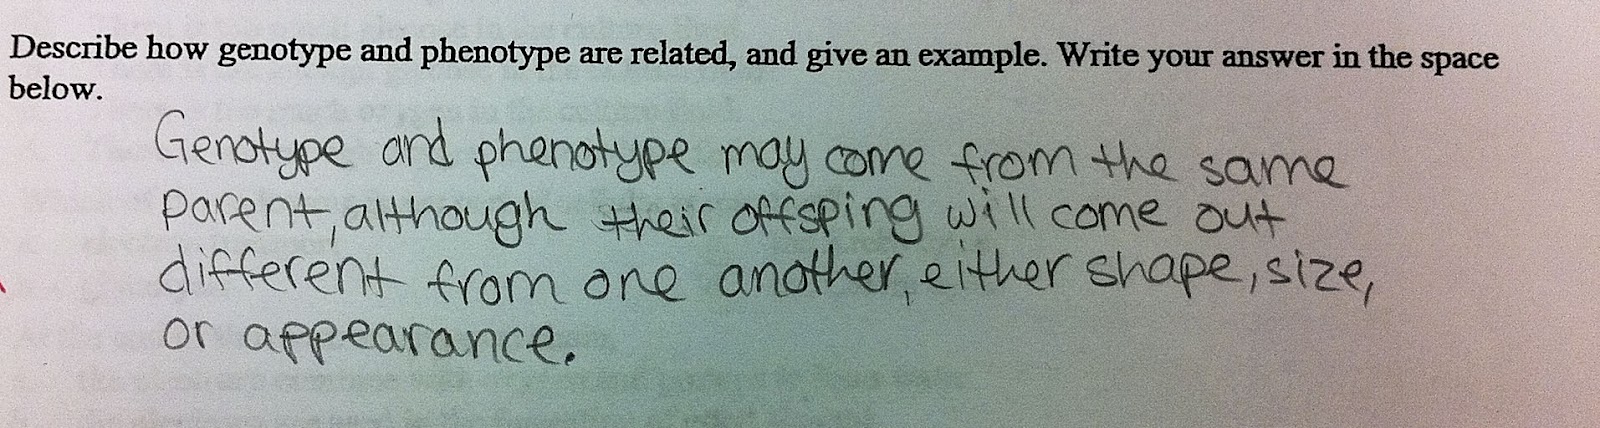 Describe how genotype and phenotype are related, and give an example. Write your answer in the space
below.
Genotype and phenotype may come from the same
parent, although their offsping will come out
different from one another, either shape, size,
or appearance.